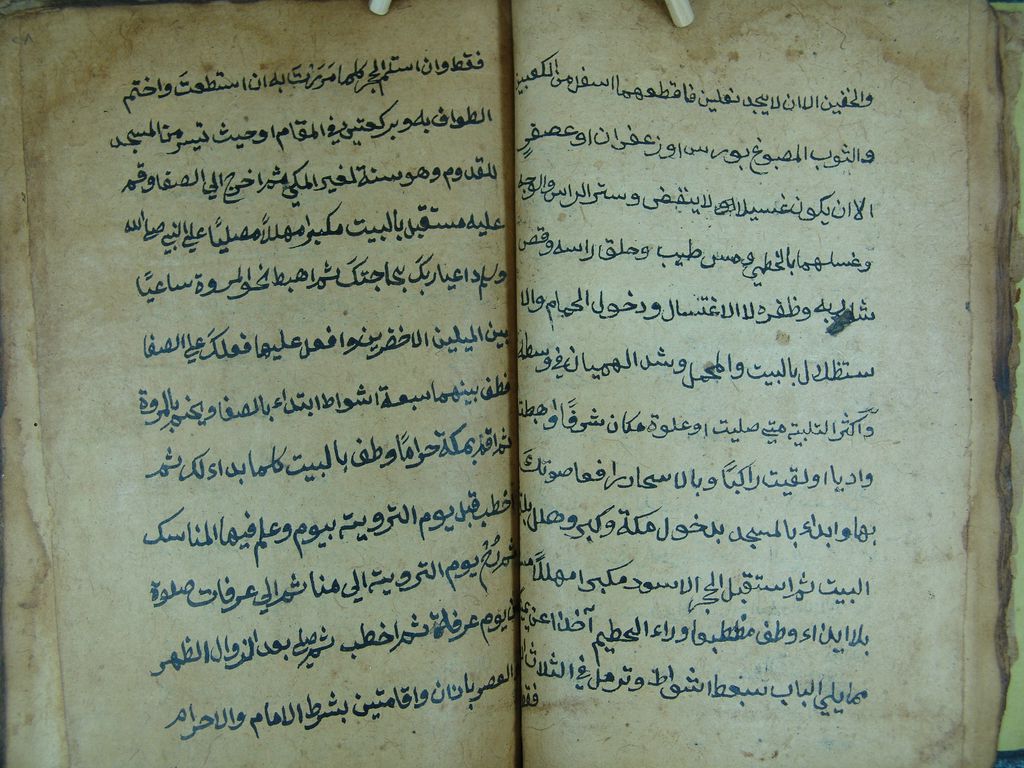 والخفين الا ان لا يجد نعلين فاقطعهما اسفل من الكعبين
والثوب المصبوغ بورس او زعفران او عصفرٍ
الا ان يكون غسيلا لا ينفض وستر الراس والوجه
وغسلهما بالخطمي ومس طيب وحلق راسه وقص
شاربه وظفره لا الاغتسال ودخول الحمام والا
ستظلال بالبيت والمحمل وشد الهميان في وسطه
واكثر التلبية متي صليت او علوة مكان شرفًا او هبطت
واديا او لقيت راكبًا وبالاسحار رافعا صوتكَ
بها وابداء بالمسجد بدخول مكة وكبر وهلل تلقا
البيت ثم استقبل الحجر الاسود مكبرا مهللًا
بلا ايذاء وطف مضطبعا وراء الحطيم آخذا عن
مما يلي الباب سبعة اشواط وترمل في الثلاث
فقط
فقط وان استلم الحجر كلما مَرَرْتَ به ان استطعتَ واختم
الطواف به وبركعتين في المقام او حيث تيسر من المسجد
للقدوم وهو سنة لغير المكي ثم اخرج الي الصفا وقم
عليه مستقبل بالبيت مكبرا مهللًا مصليًا علي النبي صلي الله
وسلم داعيا ربكَ بحاجتكَ ثم اهبط نحو المروة ساعيًا
بين الميلين الاخضرين وافعل عليها فعلكَ علي الصفا
فطف بينهما سبعة اشواط ابتداء بالصفا ويختم بالمروة
ثم اقم بمكة حرامًا وطف بالبيت كلما بداء لك ثم
اخطب قبل يوم التروية بيوم وعلم فيها المناسك
ثم رُحْ يوم التروية الي منا ثم الي عرفات صلوة
يوم عرفة ثم اخطب ثم صلي بعد الزوال الظهر
العصر باذان واقامتين بشرط الامام والاحرام